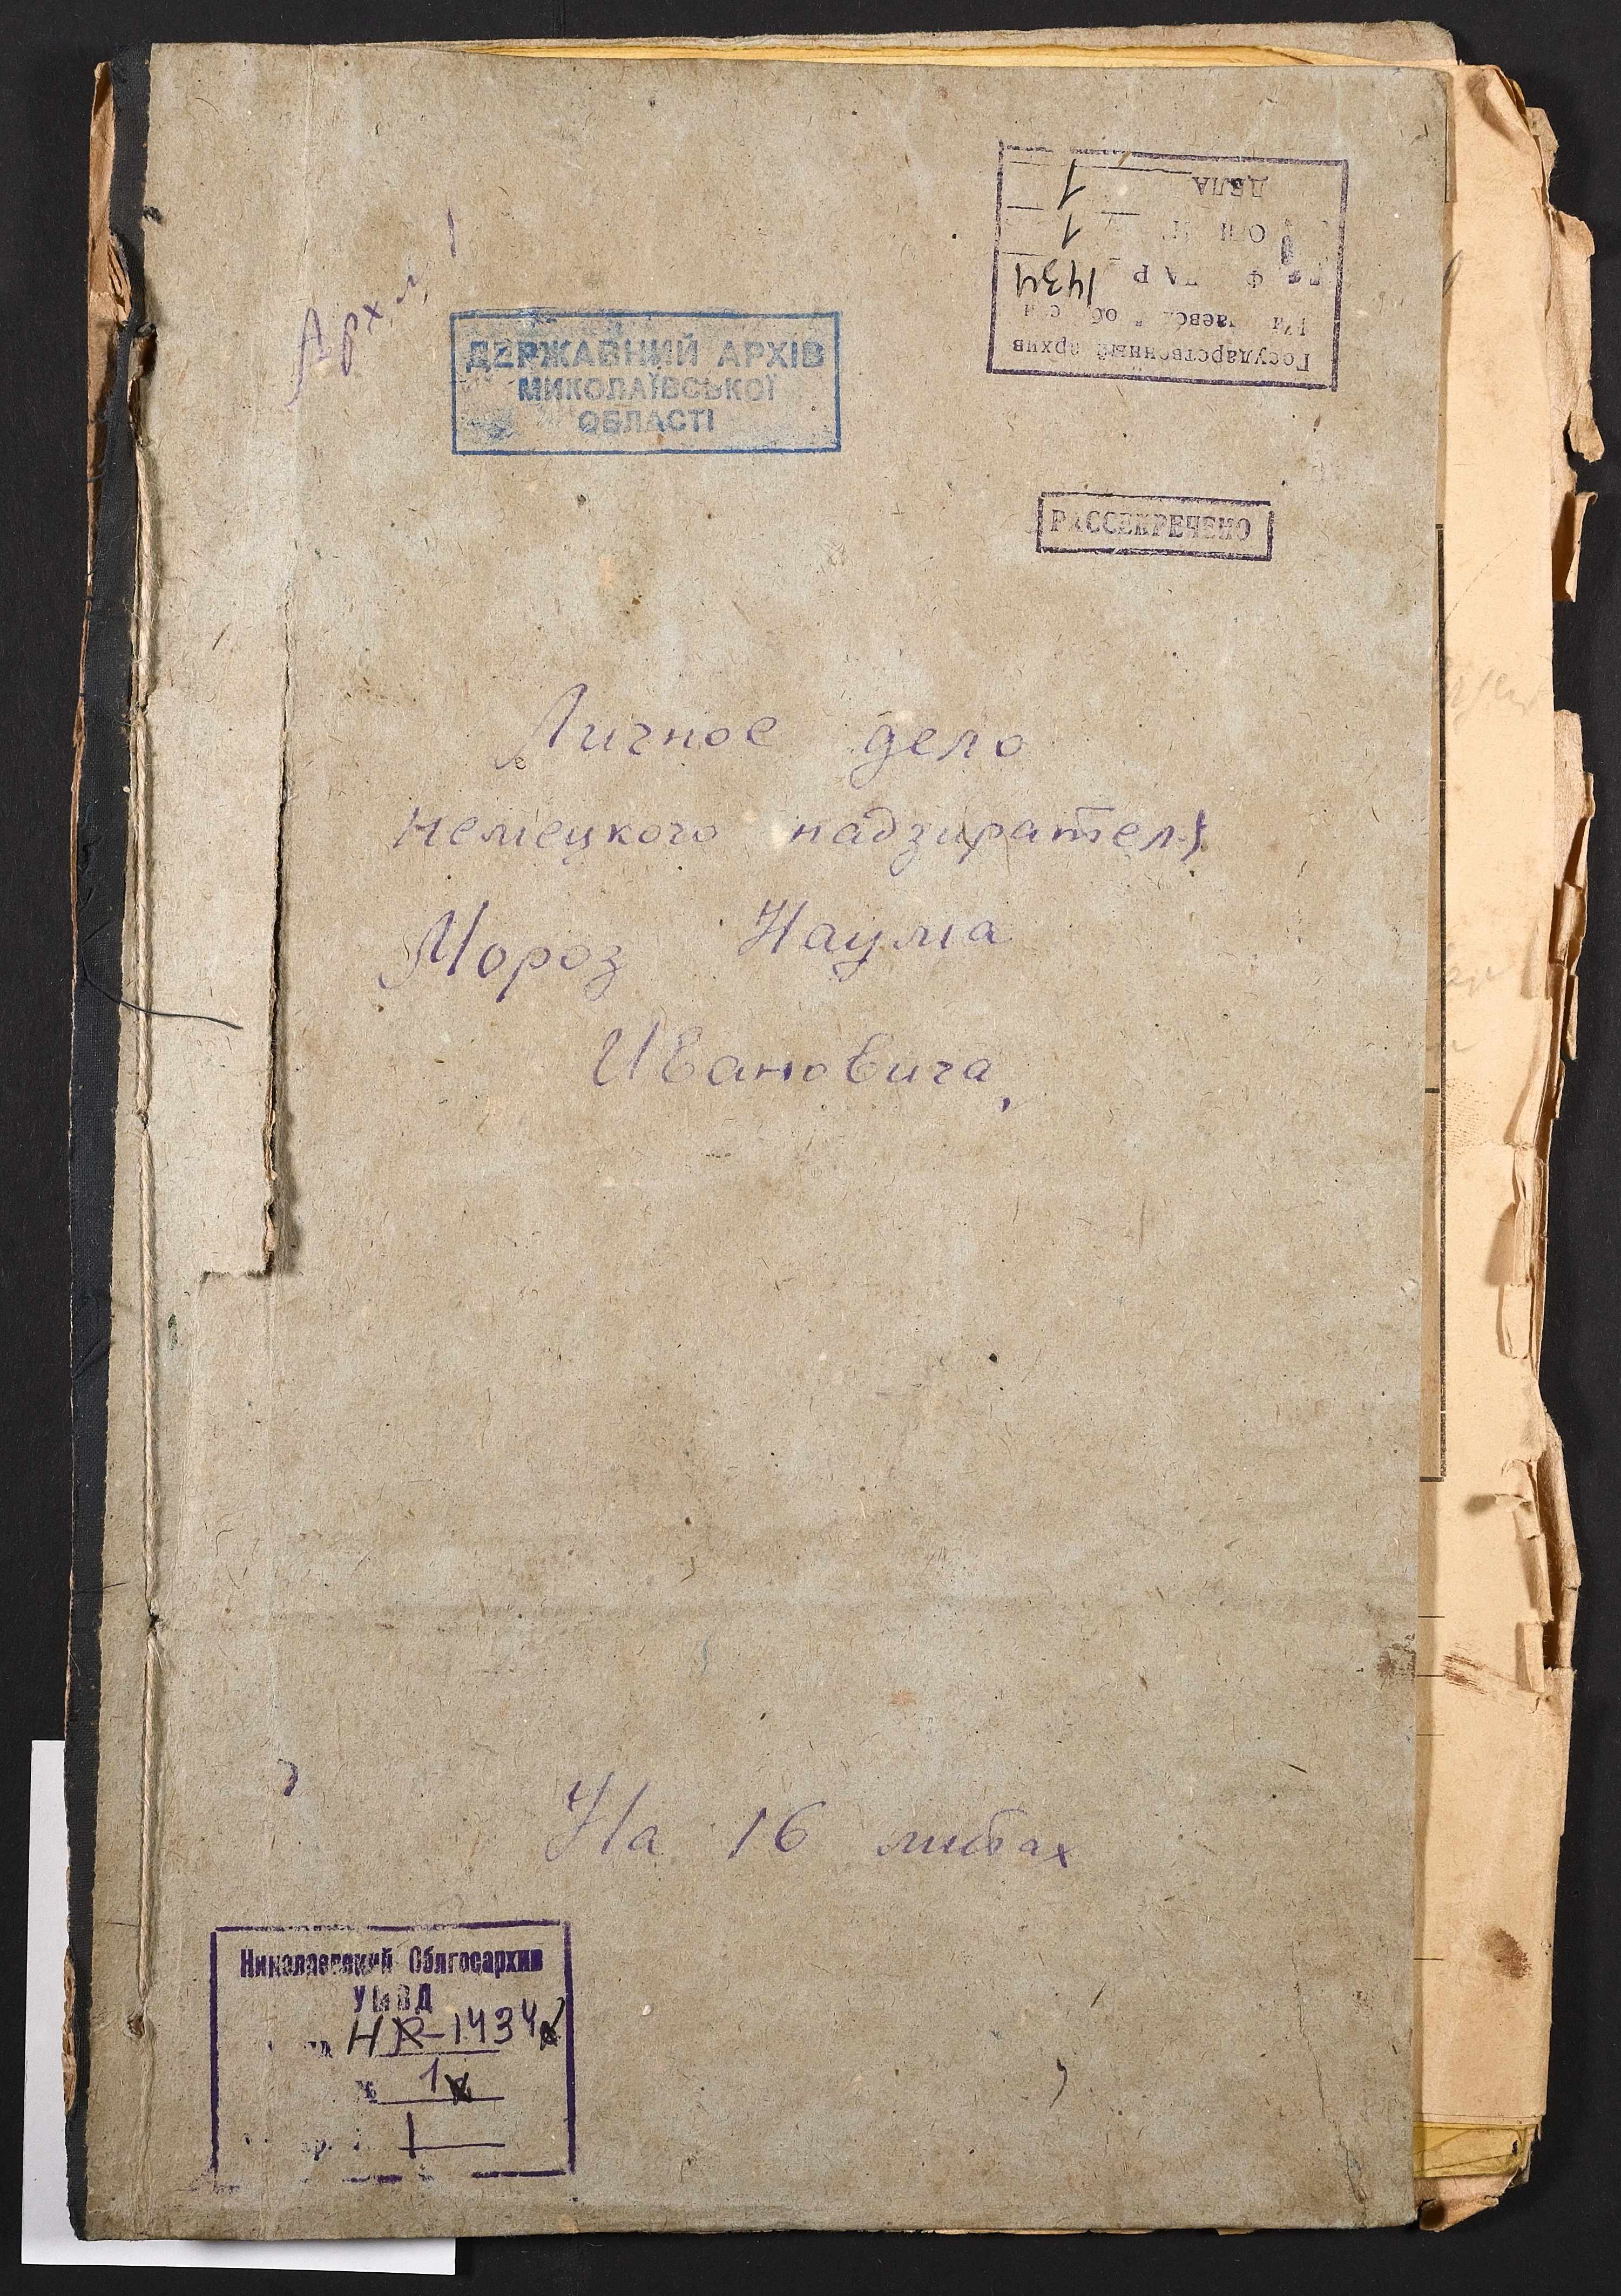 Арх. № 1
ДЕРЖАВНИЙ АРХІВ
МИКОЛАЇВСЬКОЇ
ОБЛАСТІ
Государственный архив
1434
1
ДЕЛА 1
РАССЕКРЕЧЕНО
Личное дело
немецкого надзирателя
Мороз Наума
Ивановича,
На 16 листах
Николаевский Облгосархив
УМВД
НR-1434
№ 1
1